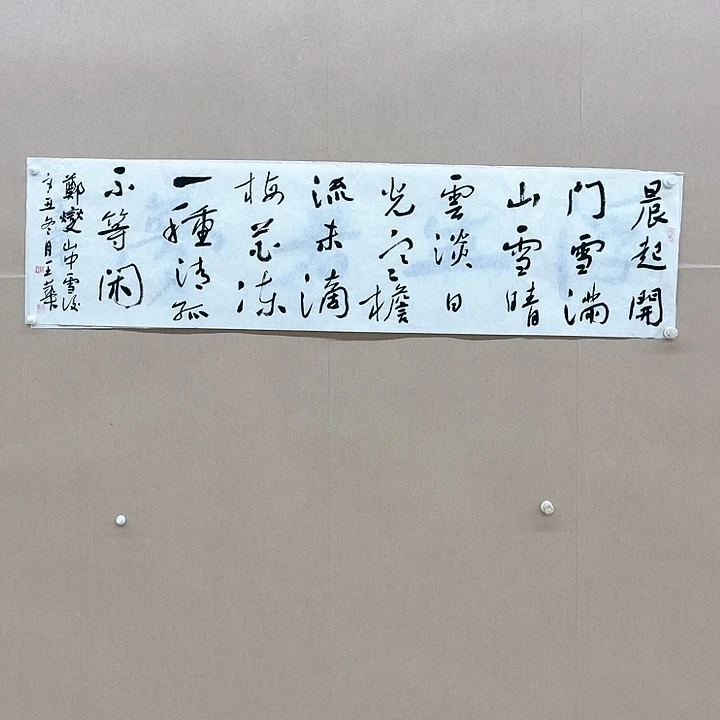 晨起開
门雪满
山雪晴
雲淡日
光寒檐
流未滴
梅花凍
一種清孤
不等闲
鄭燮山中雪後
辛丑冬月